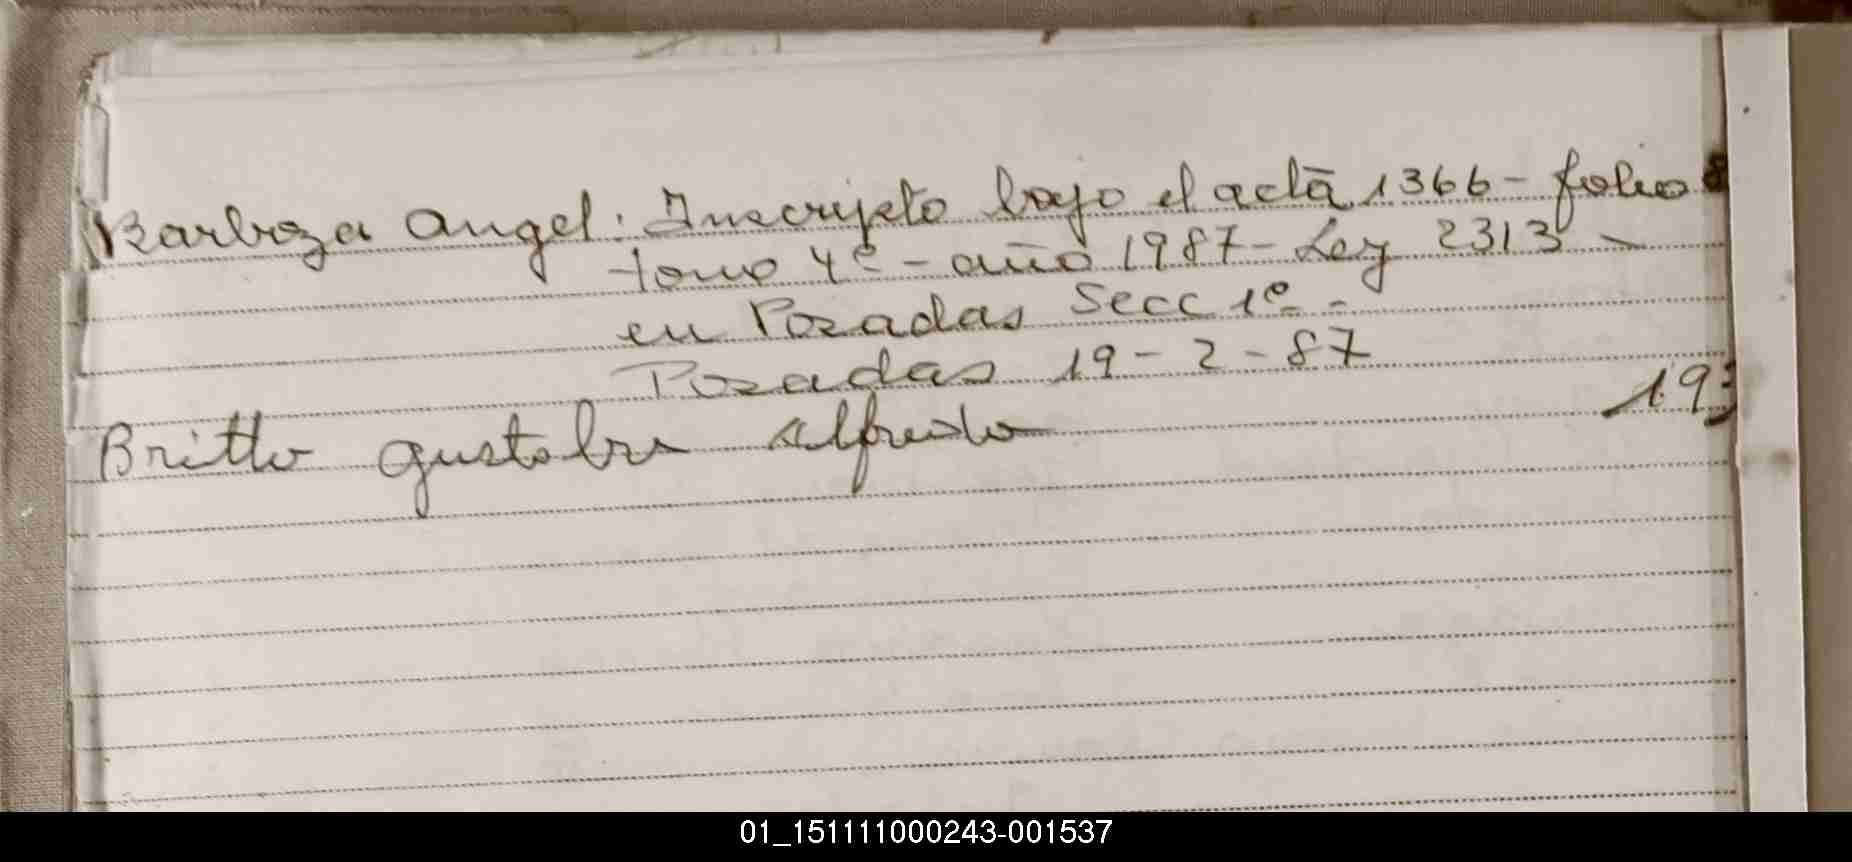 Barboza Angel. Inscripto bajo el acta 1366 - folio
tomo 4º - año 1987 - Ley 2313 -
en Pozadas Secc 1º -
Pozadas 19 - 2 - 87
193
Britto gustabo alfredo
01_151111000243-001537